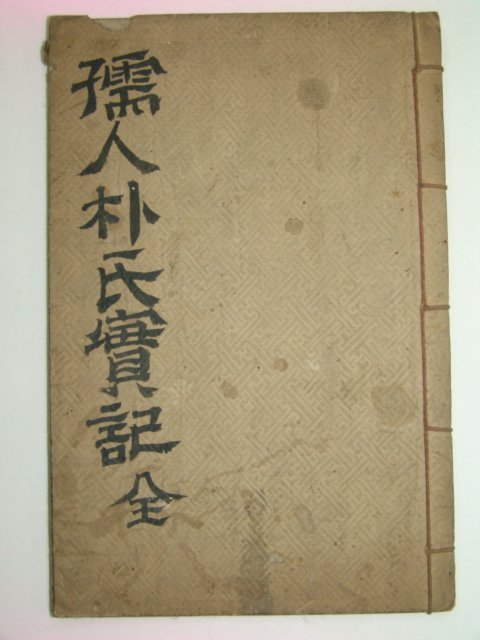 孺人朴氏實記 全